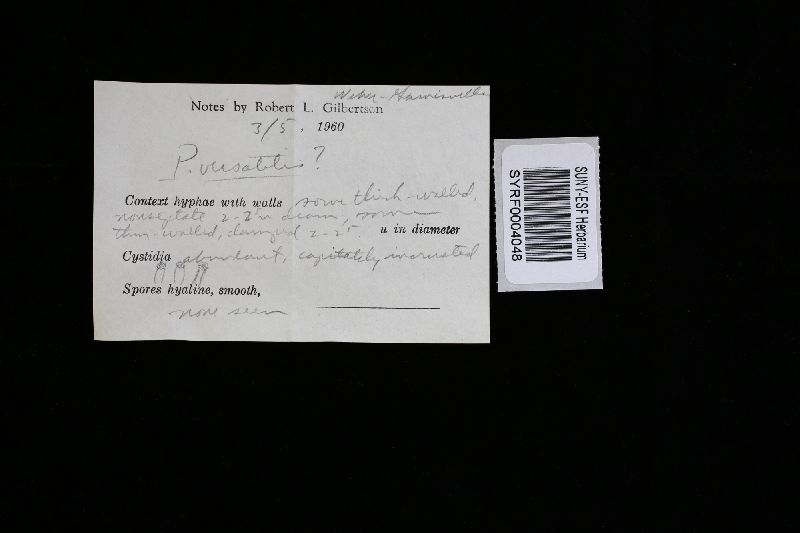 Weber - Gainesville
Notes by Robert L. Gilbertson
3/5, 1960
P. versatilis?
Context hyphae with walls some thick-walled,
nonseptate 2-7 in diam, some
thin-walled, clamped 2-2.5 u in diameter
Cystidia abundant, capitately incrusted
Spores hyaline, smooth,
none seen
SUNY-ESF Herbarium
SYRF0004048